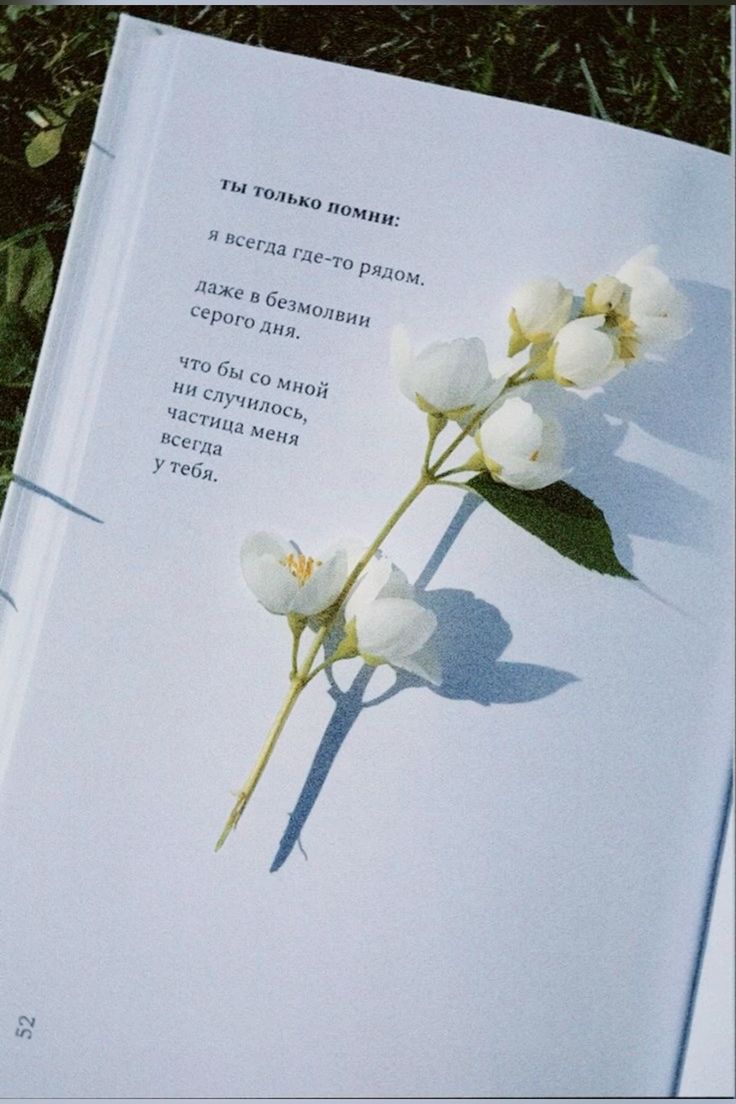 ты только помни:
я всегда где-то рядом.
даже в безмолвии
серого дня.
что бы со мной
ни случилось,
частица меня
всегда
у тебя.
52